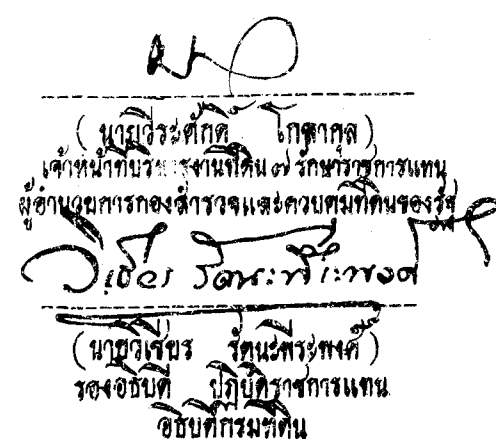 ( นายวีระศักดิ์ โภษากุล )
เจ้าหน้าที่บริหารงานที่ดิน ๗ รักษาราชการแทน
ผู้อำนวยการกองสำรวจและควบคุมที่ดินของรัฐ
วิเชียร รัตนะพีระพงศ์
( นายวิเชียร รัตนะพีระพงศ์ )
รองอธิบดี ปฏิบัติราชการแทน
อธิบดีกรมที่ดิน